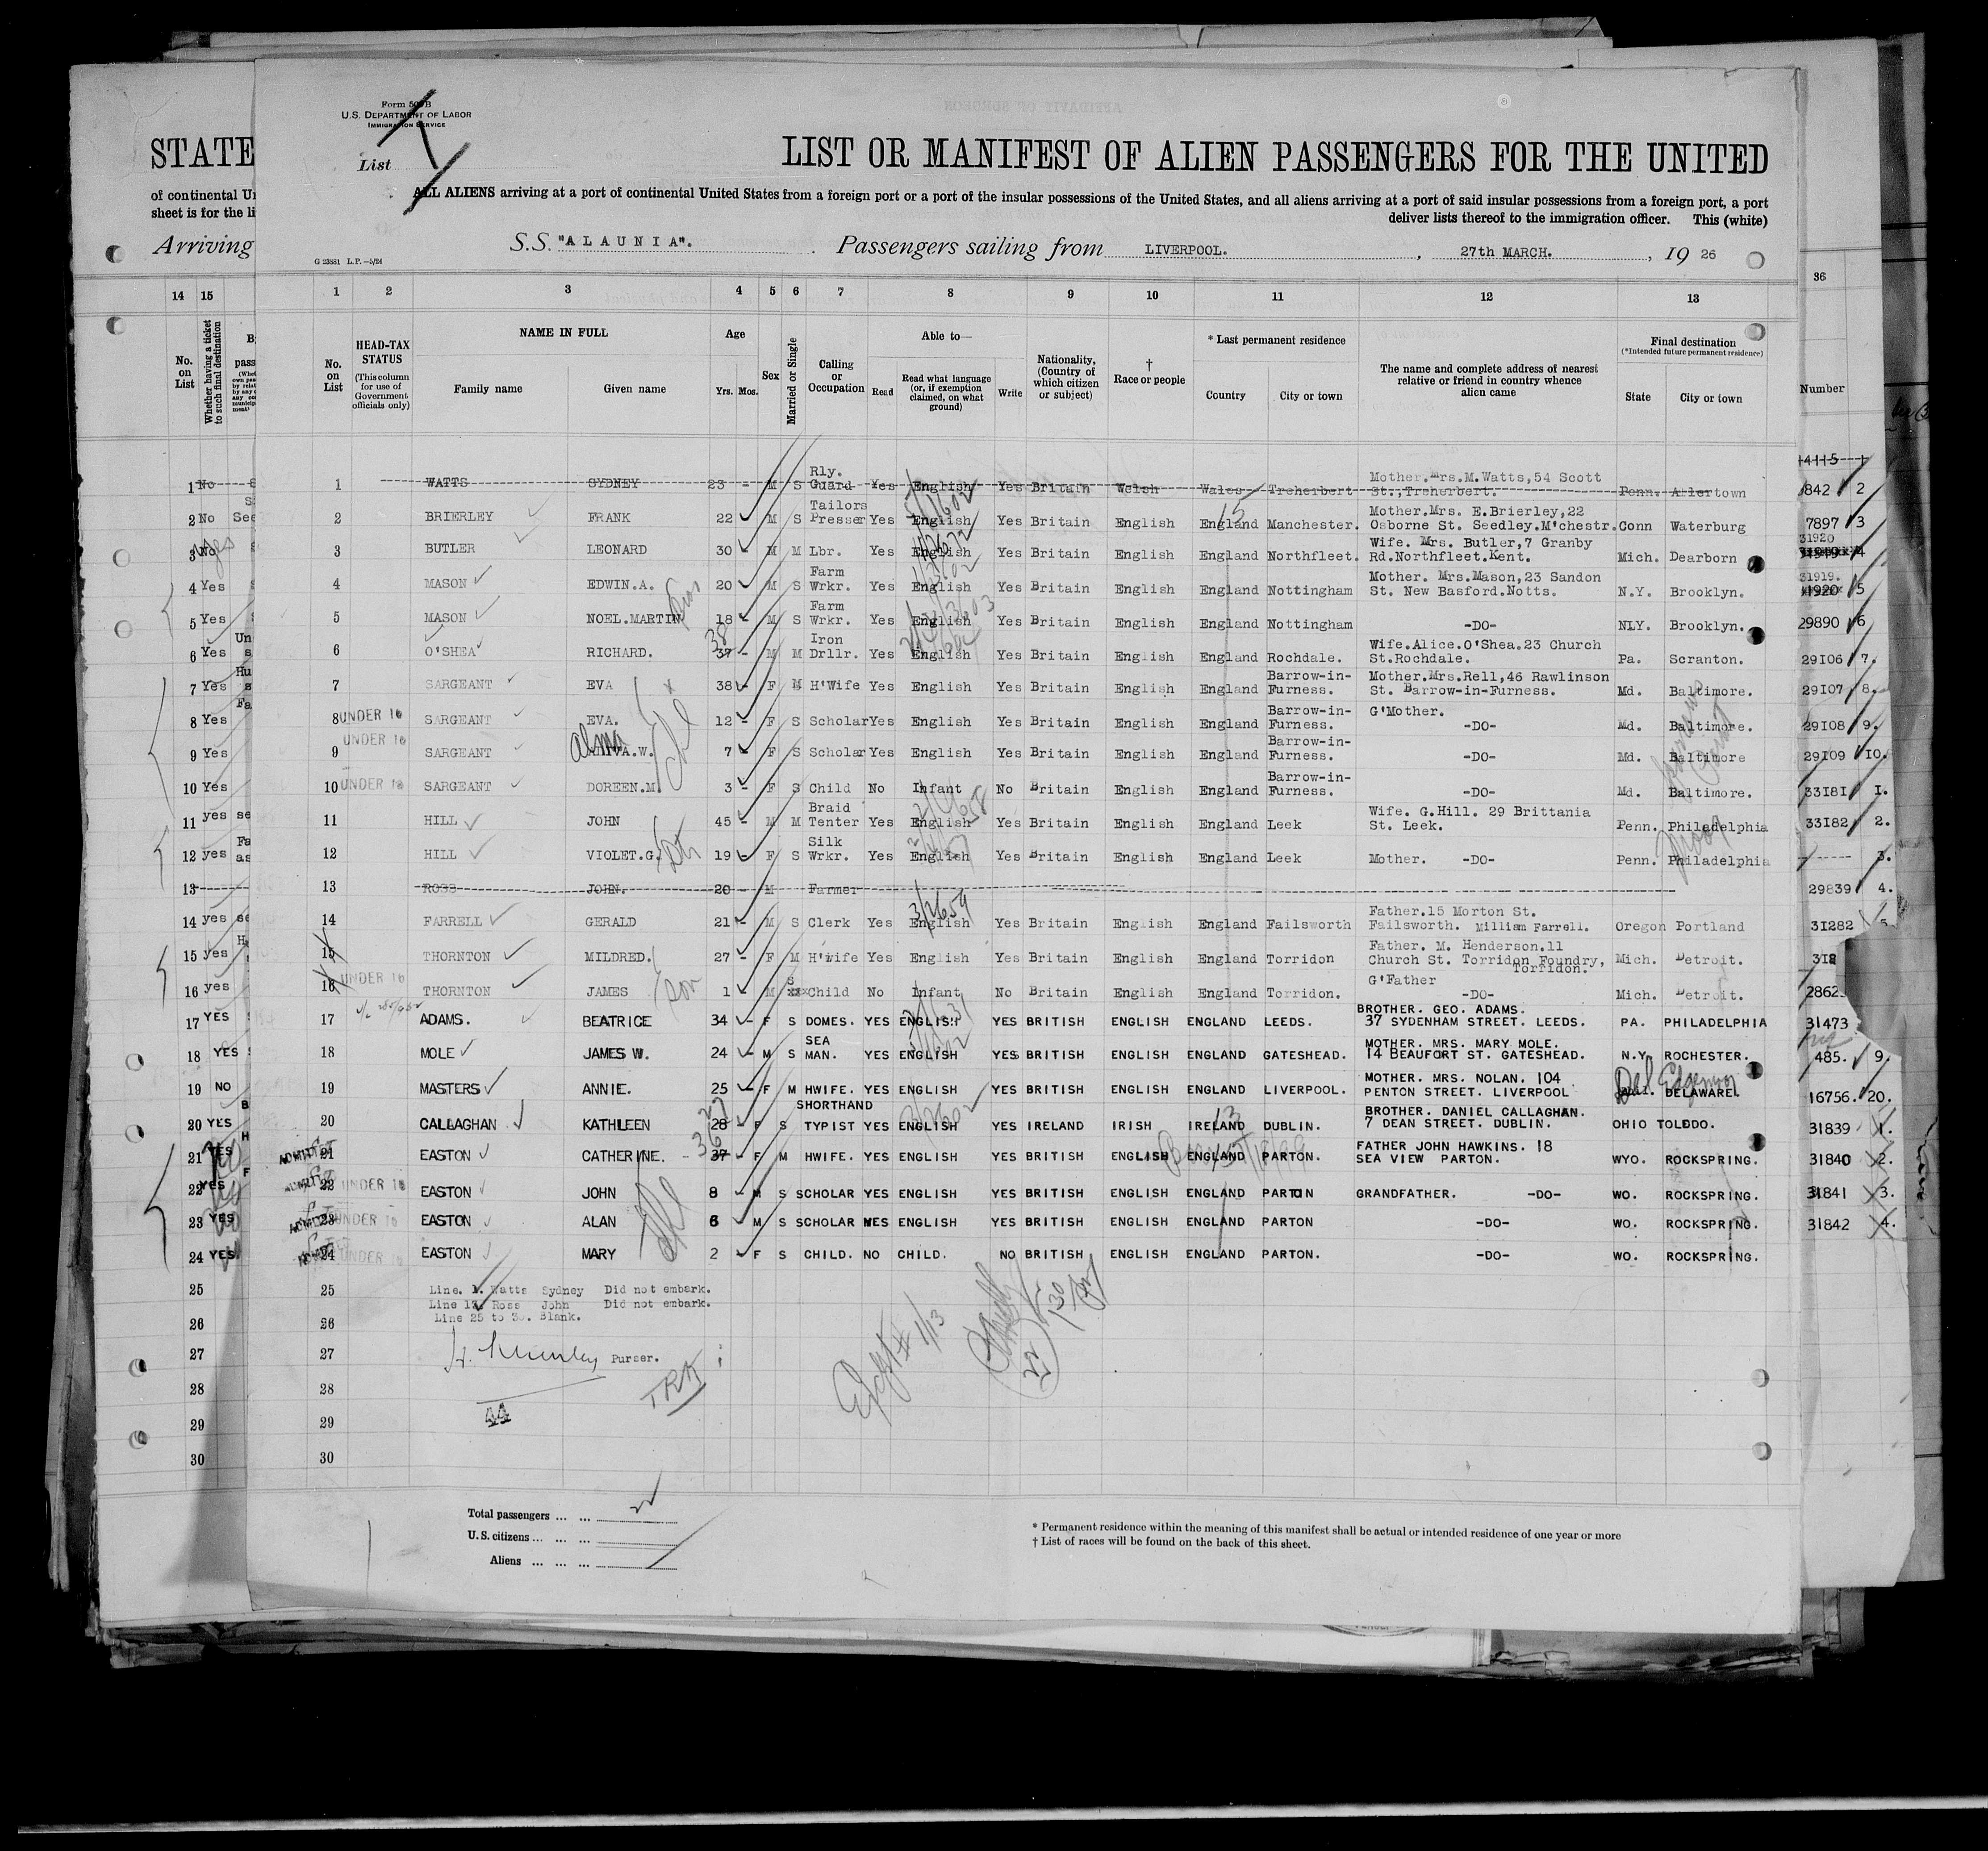 Form 500B
U.S. DEPARTMENT OF LABOR
IMMIGRATION SERVICE
List
STATE
LIST OR MANIFEST OF ALIEN PASSENGERS FOR THE UNITED
of continental Un
ALL ALIENS arriving at a port of continental United States from a foreign port or a port of the insular possessions of the United States, and all aliens arriving at a port of said insular possessions from a foreign port, a port
sheet is for the li
deliver lists thereof to the immigration officer. This (white)
Arriving
S.S. "ALAUNIA". Passengers sailing from LIVERPOOL. , 27th MARCH. , 19 26
G 23881 L.P.—5/24
14 15 1 2 3 4 5 6 7 8 9 10 11 12 13 36
No. on List
Whether having a ticket to such final destination
No. on List
HEAD-TAX STATUS
(This column for use of Government officials only)
NAME IN FULL
Family name Given name
Age
Yrs. Mos.
Sex
Married or Single
Calling or Occupation
Able to—
Read
Read what language (or, if exemption claimed, on what ground)
Write
Nationality, (Country of which citizen or subject)
† Race or people
* Last permanent residence
Country City or town
The name and complete address of nearest relative or friend in country whence alien came
Final destination
(*Intended future permanent residence)
State City or town
Number
1 No 1 WATTS SYDNEY 23 - M S Rly. Guard Yes English Yes Britain Welsh Wales Treherbert Mother.Mrs.M.Watts,54 Scott St.,Treherbert. Penn. Allertown 4115 1
2 No See 2 BRIERLEY FRANK 22 M S Tailors Presser Yes English Yes Britain English England Manchester. Mother.Mrs. E.Brierley,22 Osborne St. Seedley.M'chestr. Conn Waterburg 842 2
3 No Yes 3 BUTLER LEONARD 30 M M Lbr. Yes English Yes Britain English England Northfleet. Wife. Mrs. Butler,7 Granby Rd.Northfleet.Kent. Mich. Dearborn 7897 3
4 Yes 4 MASON EDWIN.A. 20 M S Farm Wrkr. Yes English Yes Britain English England Nottingham Mother. Mrs.Mason,23 Sandon St. New Basford.Notts. N.Y. Brooklyn. 31920 4
5 Yes 5 MASON NOEL.MARTIN 18 - M S Farm Wrkr. Yes English Yes Britain English England Nottingham -DO- NLY. Brooklyn. 31919. 5
6 Yes 6 O'SHEA RICHARD. 37 38 - M M Iron Drllr. Yes English Yes Britain English England Rochdale. Wife.Alice.O'Shea.23 Church St.Rochdale. Pa. Scranton. 29890 6
7 Yes 7 SARGEANT EVA 38 - F M H'Wife Yes English Yes Britain English England Barrow-in-Furness. Mother.Mrs.Rell,46 Rawlinson St. Barrow-in-Furness. Md. Baltimore. 29106 7.
8 Yes 8 UNDER 16 SARGEANT EVA. 12 - F S Scholar Yes English Yes Britain English England Barrow-in-Furness. G'Mother. -DO- Md. Baltimore. 29107 8.
9 Yes 9 UNDER 16 SARGEANT Alma A.W. 7 F S Scholar Yes English Yes Britain English England Barrow-in-Furness. -DO- Md. Baltimore 29108 9.
10 Yes 10 UNDER 16 SARGEANT DOREEN.M. 3 - F S Child No Infant No Britain English England Barrow-in-Furness. -DO- Md. Baltimore. 29109 10.
11 yes se 11 HILL JOHN 45 - M M Braid Tenter Yes English Yes Britain English England Leek Wife. G.Hill. 29 Brittania St. Leek. Penn. Philadelphia 33181 1.
12 yes as 12 HILL VIOLET.G. 19 F S Silk Wrkr. Yes English Yes Britain English England Leek Mother. -DO- Penn. Philadelphia 33182 2.
13 13 ROSS JOHN. 20 - M Farmer 3.
14 yes se 14 FARRELL GERALD 21 - M S Clerk Yes English Yes Britain English England Failsworth Father.15 Morton St. Failsworth. William Farrell. Oregon Portland 29839 4.
15 yes 15 THORNTON MILDRED. 27 - F M H'wife Yes English Yes Britain English England Torridon Father. M. Henderson.11 Church St. Torridon Foundry, Torridon. Mich. Detroit. 31282 5
16 yes 16 UNDER 16 THORNTON JAMES son 1 M S Child No Infant No Britain English England Torridon. G'Father -DO- Mich. Detroit.
17 YES 17 ADAMS. BEATRICE 34 - F S DOMES. YES ENGLISH YES BRITISH ENGLISH ENGLAND LEEDS. BROTHER. GEO. ADAMS. 37 SYDENHAM STREET. LEEDS. PA. PHILADELPHIA
18 YES 18 MOLE JAMES W. 24 - M S SEA MAN. YES ENGLISH YES BRITISH ENGLISH ENGLAND GATESHEAD. MOTHER. MRS. MARY MOLE. 14 BEAUFORT ST. GATESHEAD. N.Y. ROCHESTER. 31473
19 NO 19 MASTERS ANNIE. 25 - F M HWIFE. YES ENGLISH YES BRITISH ENGLISH ENGLAND LIVERPOOL. MOTHER. MRS. NOLAN. 104 PENTON STREET. LIVERPOOL Del. Edgemoor DELAWARE. 485. 9.
20 YES 20 CALLAGHAN KATHLEEN 28 27 F S SHORTHAND TYPIST YES ENGLISH YES IRELAND IRISH IRELAND DUBLIN. BROTHER. DANIEL CALLAGHAN. 7 DEAN STREET. DUBLIN. OHIO TOLEDO. 16756. 20.
21 YES ADMITTED 21 EASTON CATHERINE. 37 36 - F M HWIFE. YES ENGLISH YES BRITISH ENGLISH ENGLAND PARTON. FATHER JOHN HAWKINS. 18 SEA VIEW PARTON. WYO. ROCKSPRING. 31839 1.
22 YES 22 UNDER 16 EASTON JOHN 8 - M S SCHOLAR YES ENGLISH YES BRITISH ENGLISH ENGLAND PARTON GRANDFATHER. -DO- WO. ROCKSPRING. 31840 2.
23 YES 23 UNDER 16 EASTON ALAN 6 - M S SCHOLAR YES ENGLISH YES BRITISH ENGLISH ENGLAND PARTON -DO- WO. ROCKSPRING. 31841 3.
24 YES. 24 UNDER 16 EASTON MARY 2 - F S CHILD. NO CHILD. NO BRITISH ENGLISH ENGLAND PARTON. -DO- WO. ROCKSPRING. 31842 4.
25 25 Line. 1. Watts Sydney Did not embark.
Line 13. Ross John Did not embark.
26 26 Line 25 to 30. Blank.
27 27 Purser.
28 28 TRK
29 29 44
30 30
Total passengers ... ...
U.S. citizens ... ... ...
Aliens ... ... ...
* Permanent residence within the meaning of this manifest shall be actual or intended residence of one year or more
† List of races will be found on the back of this sheet.